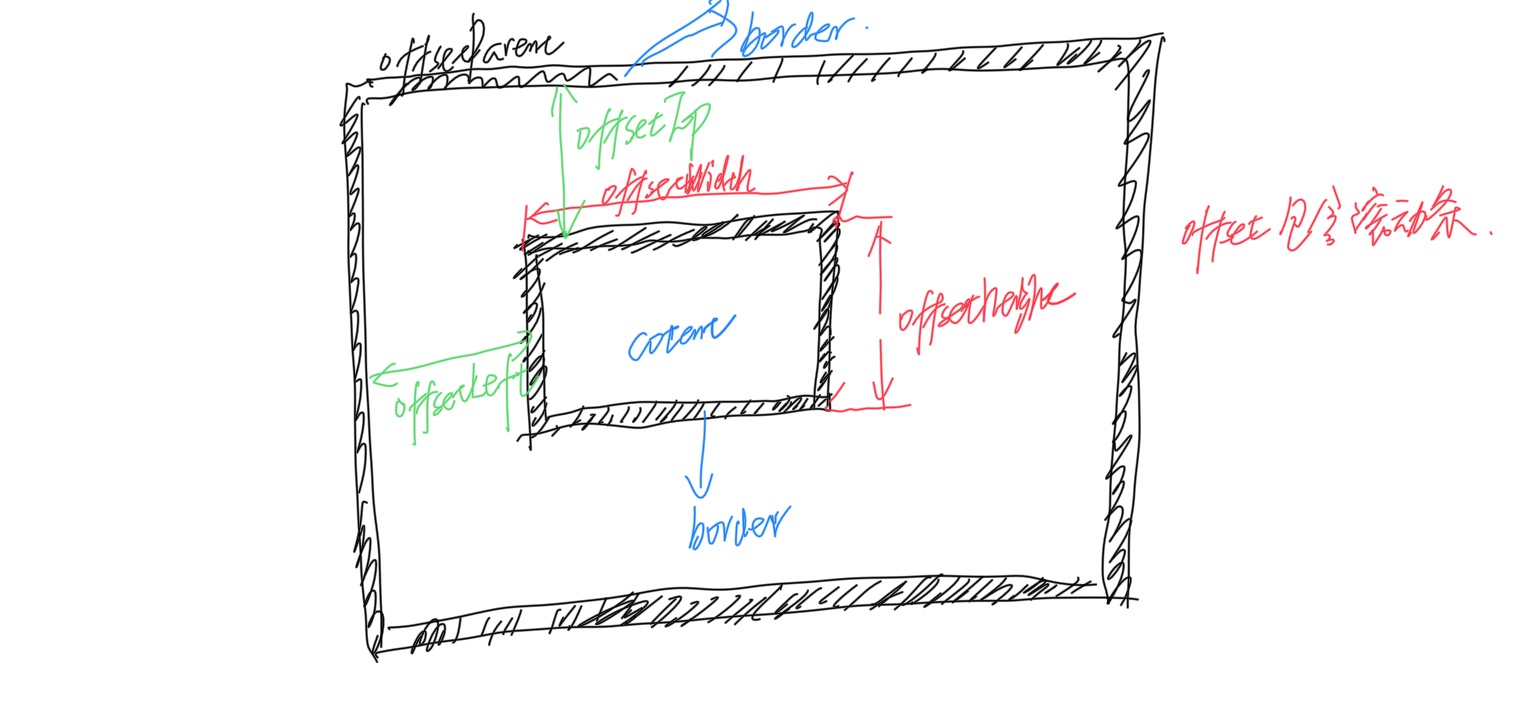 offsetParent
border.
offsetTop
offsetWidth
offset 包含滚动条.
offsetheight
cotent
offsetLeft
border